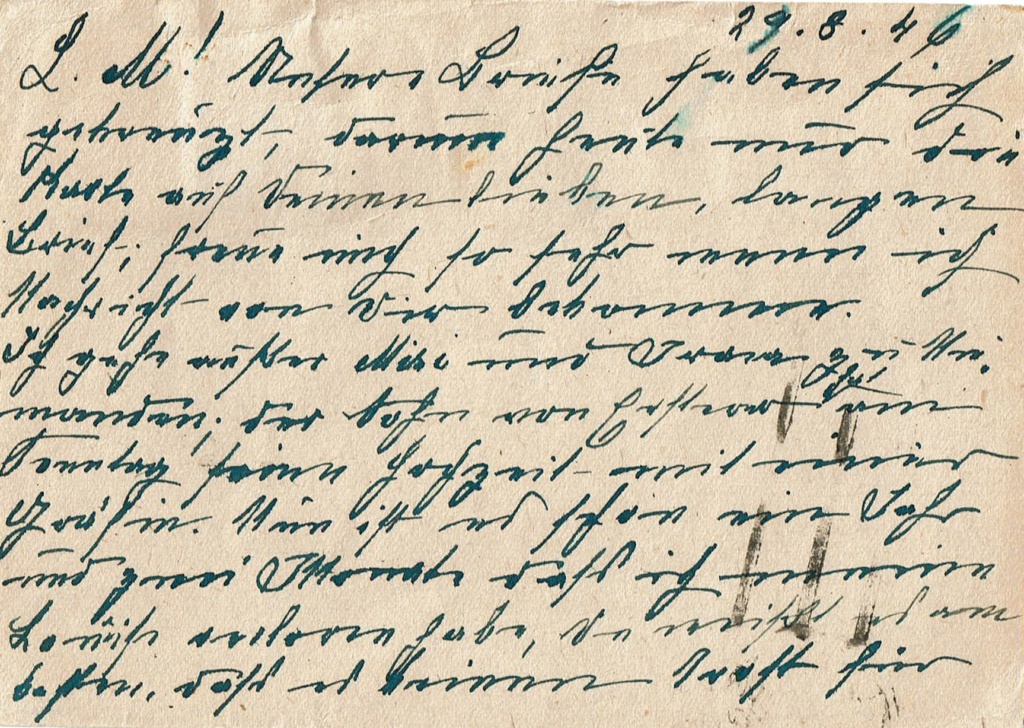 29.8.46
L. M! Unsere Briefe haben sich
gekreuzt, darum heute nur die
Karte auf Deinen lieben, langen
Brief; freue mich so sehr wenn ich
Nachricht von Dir bekomme.
Ich gehe außer Mizi und zu Nie-
manden; der Sohn von hat am
Sonntag seine Hochzeit mit einer
Gräfin. Nun ist es schon ein Jahr
und zwei Monate daß ich meine
Louise verloren habe, Du weißt es am
besten, daß es keinen Trost für